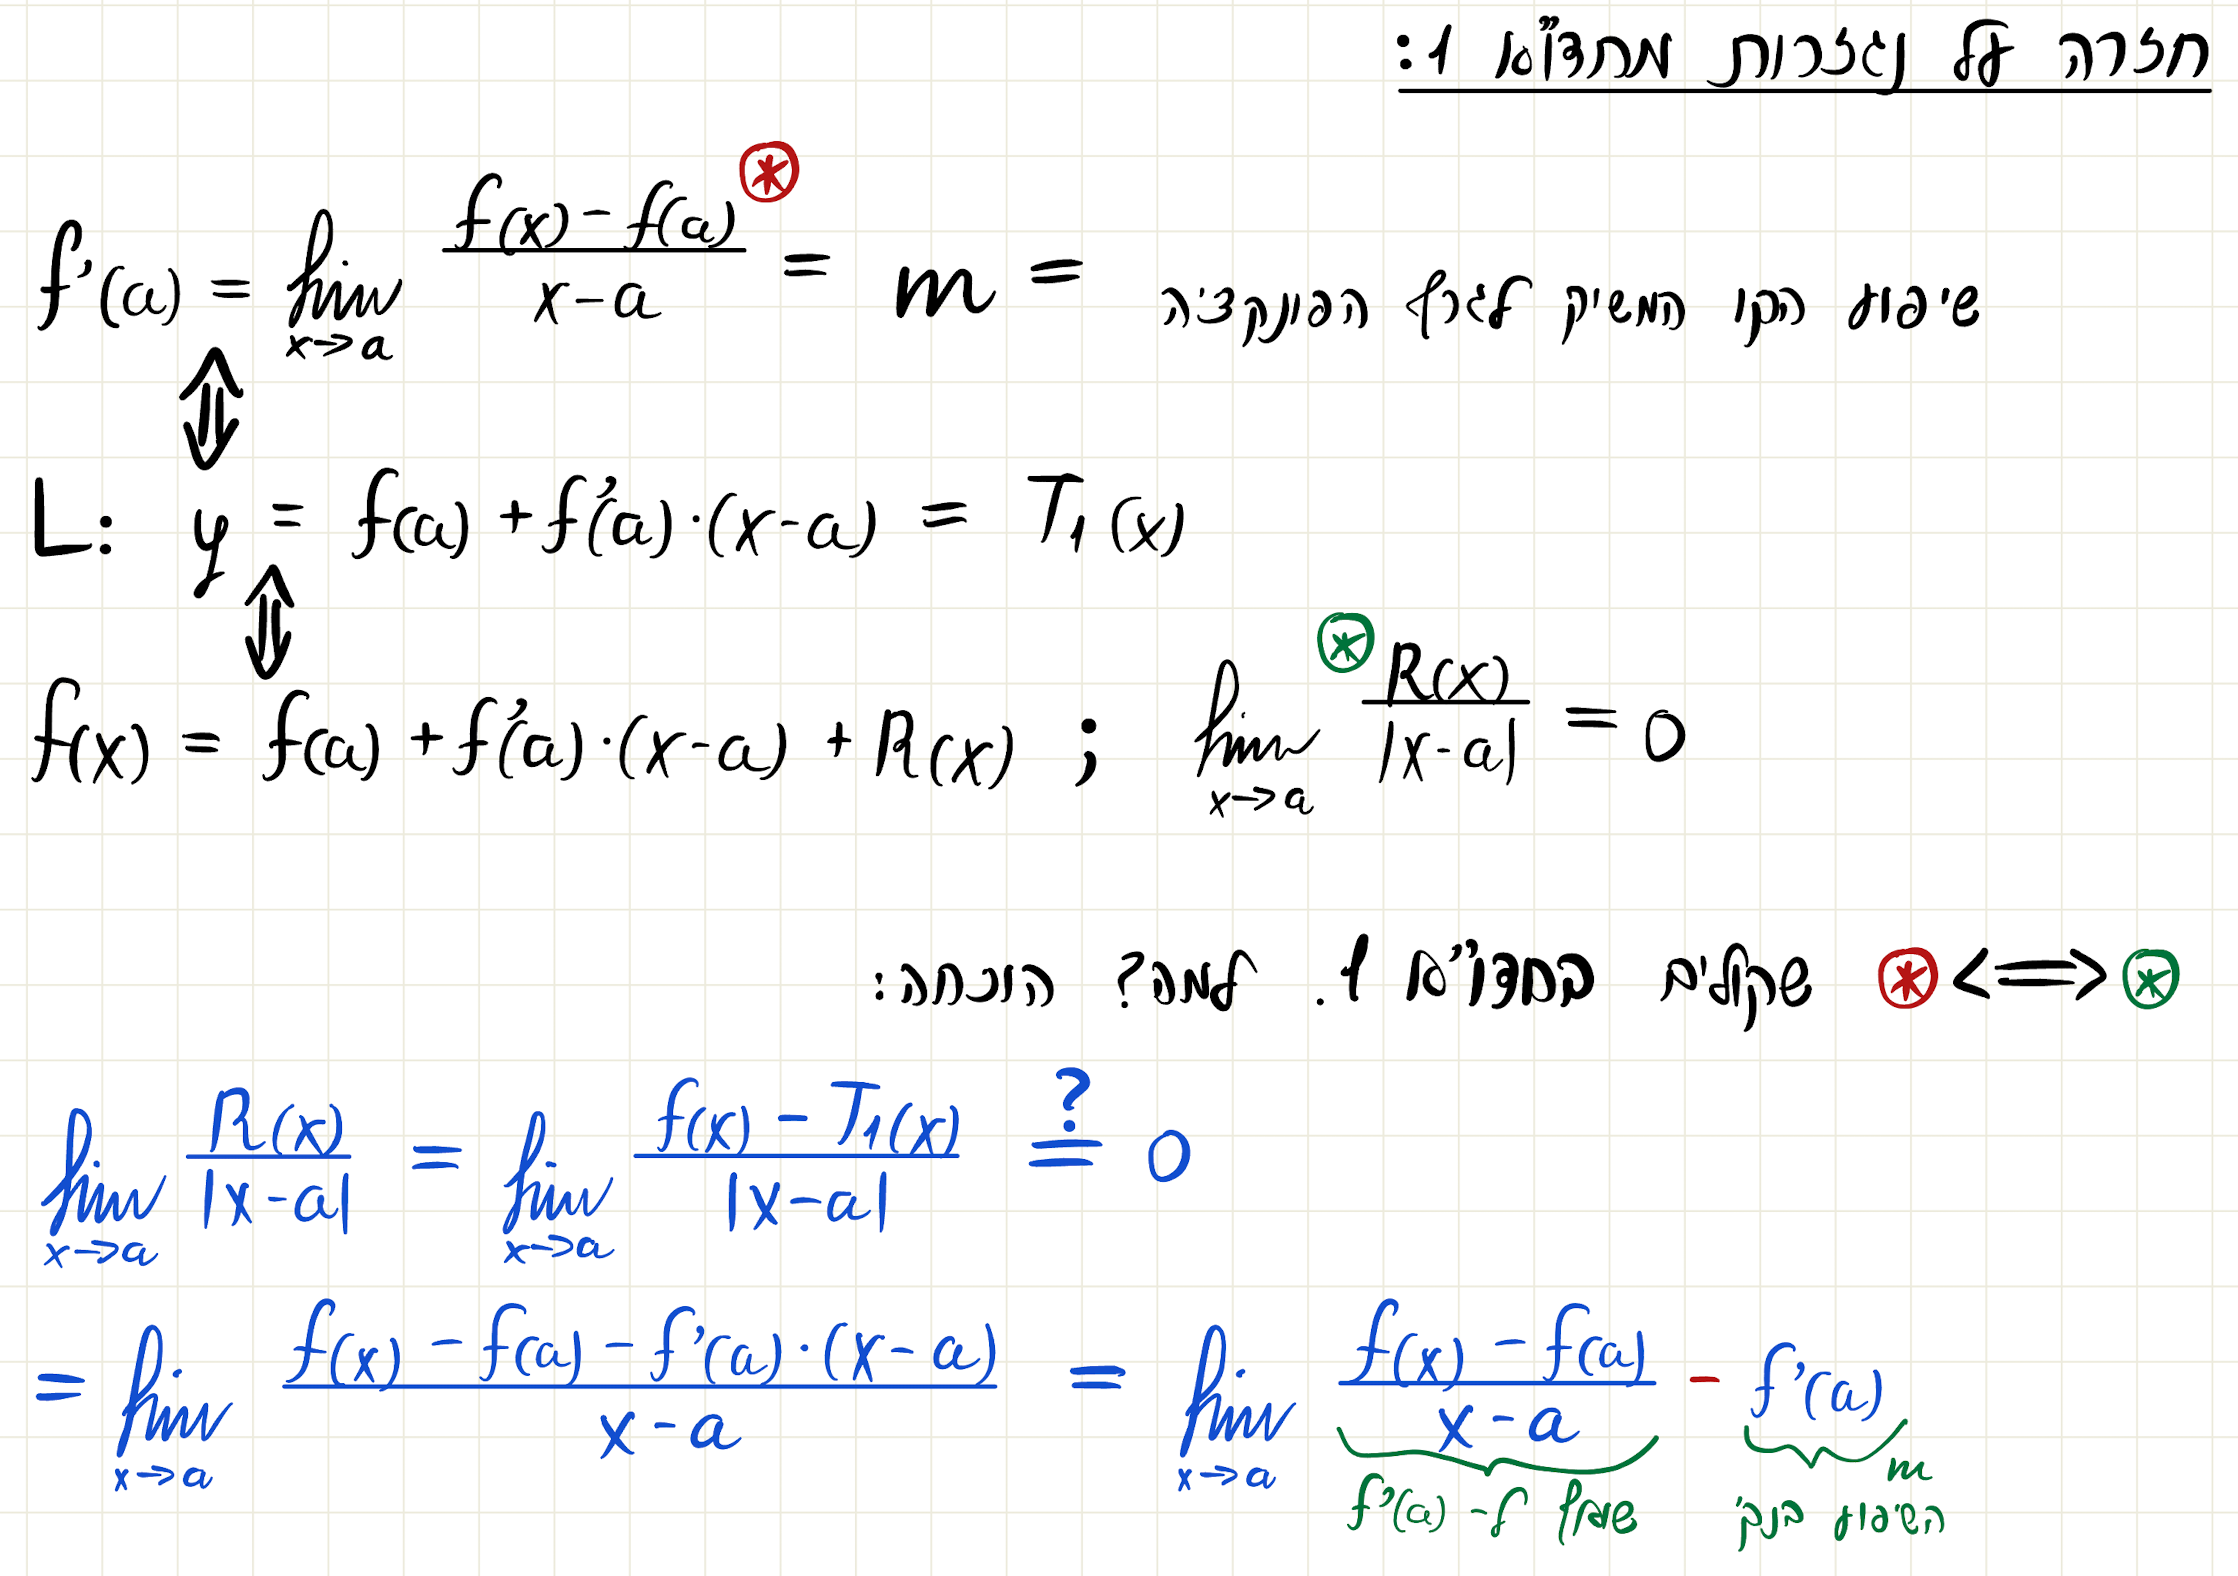 חזרה על נגזרות מחדו"א 1:
f'(a) = lim_{x→a} (f(x) - f(a))/(x-a) ⊛ = m = שיפוע הקו המשיק לגרף הפונקציה
⇕
L: y = f(a) + f'(a)·(x-a) = T₁(x)
⇕
f(x) = f(a) + f'(a)·(x-a) + R(x) ; lim_{x→a} ⊛ R(x)/|x-a| = 0
⊛ <=> ⊛ שקולים בחדו"א 1. למה? הוכחה:
lim_{x→a} R(x)/|x-a| = lim_{x→a} (f(x) - T₁(x))/|x-a| ≟ 0
= lim_{x→a} (f(x) - f(a) - f'(a)·(x-a))/(x-a) = lim_{x→a} (f(x) - f(a))/(x-a) - f'(a)
שואף ל- f'(a)
m השיפוע בנק'